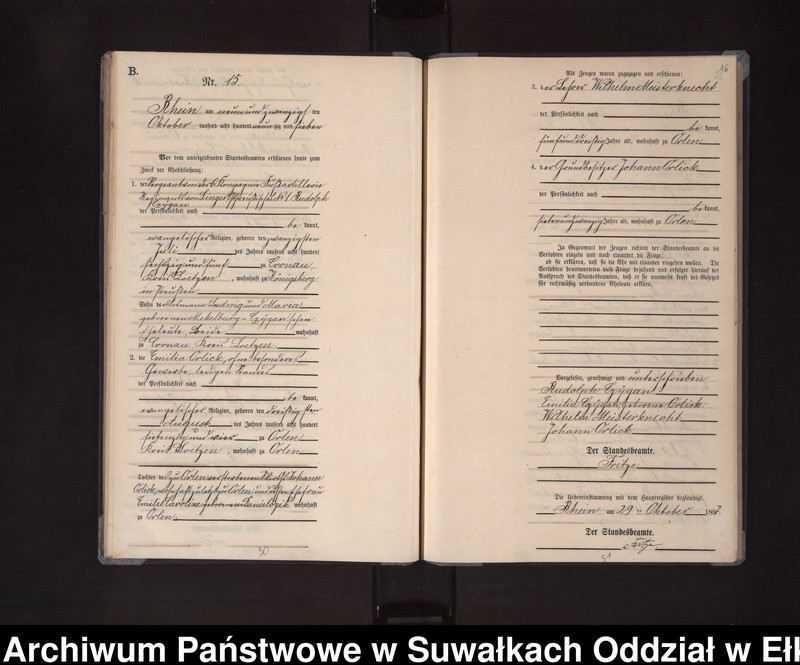 B.
Nr. 15.
Rhein am neunundzwanzigsten
Oktober tausend acht hundert neunzig und sieben
Vor dem unterzeichneten Standesbeamten erschienen heute zum
Zweck der Eheschließung:
1. der Sergeant von der 6. Kompagnie Fußartillerie
Regiments von Linger Ostpreußisches No 1 Rudolph
Czygan
der Persönlichkeit nach
be kannt,
evangelischer Religion, geboren den zwanzigsten
Juli des Jahres tausend acht hundert
sechszig und fünf zu Cronau,
Kreis Loetzen, wohnhaft zu Königsberg
in Preußen
Sohn des Ludwig und Maria
geborenen Mekelburg-Czygan'schen
Eheleute, Beide wohnhaft
zu Cronau, Kreis Loetzen
2. die Emilia Orlick, ohne besonderes
Gewerbe, ledigen Standes
der Persönlichkeit nach
be kannt,
evangelischer Religion, geboren den dreißigsten
August des Jahres tausend acht hundert
siebenzig und vier zu Orlen
Kreis Loetzen, wohnhaft zu Orlen
Tochter des zu Orlen verstorbenen Wirths Johann
Orlick, wohnhaft zuletzt zu Orlen und dessen Ehefrau
Emilie Caroline geborenen wohnhaft
zu Orlen
30
16
Als Zeugen waren zugezogen und erschienen:
3. der Lehrer Wilhelm Meisterknecht
der Persönlichkeit nach
be kannt,
fünfunddreißig Jahre alt, wohnhaft zu Orlen
4. der Grundbesitzer Johann Orlick
der Persönlichkeit nach
be kannt,
siebenundzwanzig Jahre alt, wohnhaft zu Orlen
In Gegenwart der Zeugen richtete der Standesbeamte an die
Verlobten einzeln und nach einander die Frage:
ob sie erklären, daß sie die Ehe mit einander eingehen wollen. Die
Verlobten beantworteten diese Frage bejahend und erfolgte hierauf der
Ausspruch des Standesbeamten, daß er sie nunmehr kraft des Gesetzes
für rechtmäßig verbundene Eheleute erkläre.
Vorgelesen, genehmigt und unterschrieben
Rudolph Czygan
Emilie Czygan geborene Orlick
Wilhelm Meisterknecht
Johann Orlick
Der Standesbeamte.
Fritze
Die Uebereinstimmung mit dem Hauptregister beglaubigt.
Rhein am 29 ten Oktober 1897.
Der Standesbeamte.
Fritze
31
Archiwum Państwowe w Suwałkach Oddział w Ełk